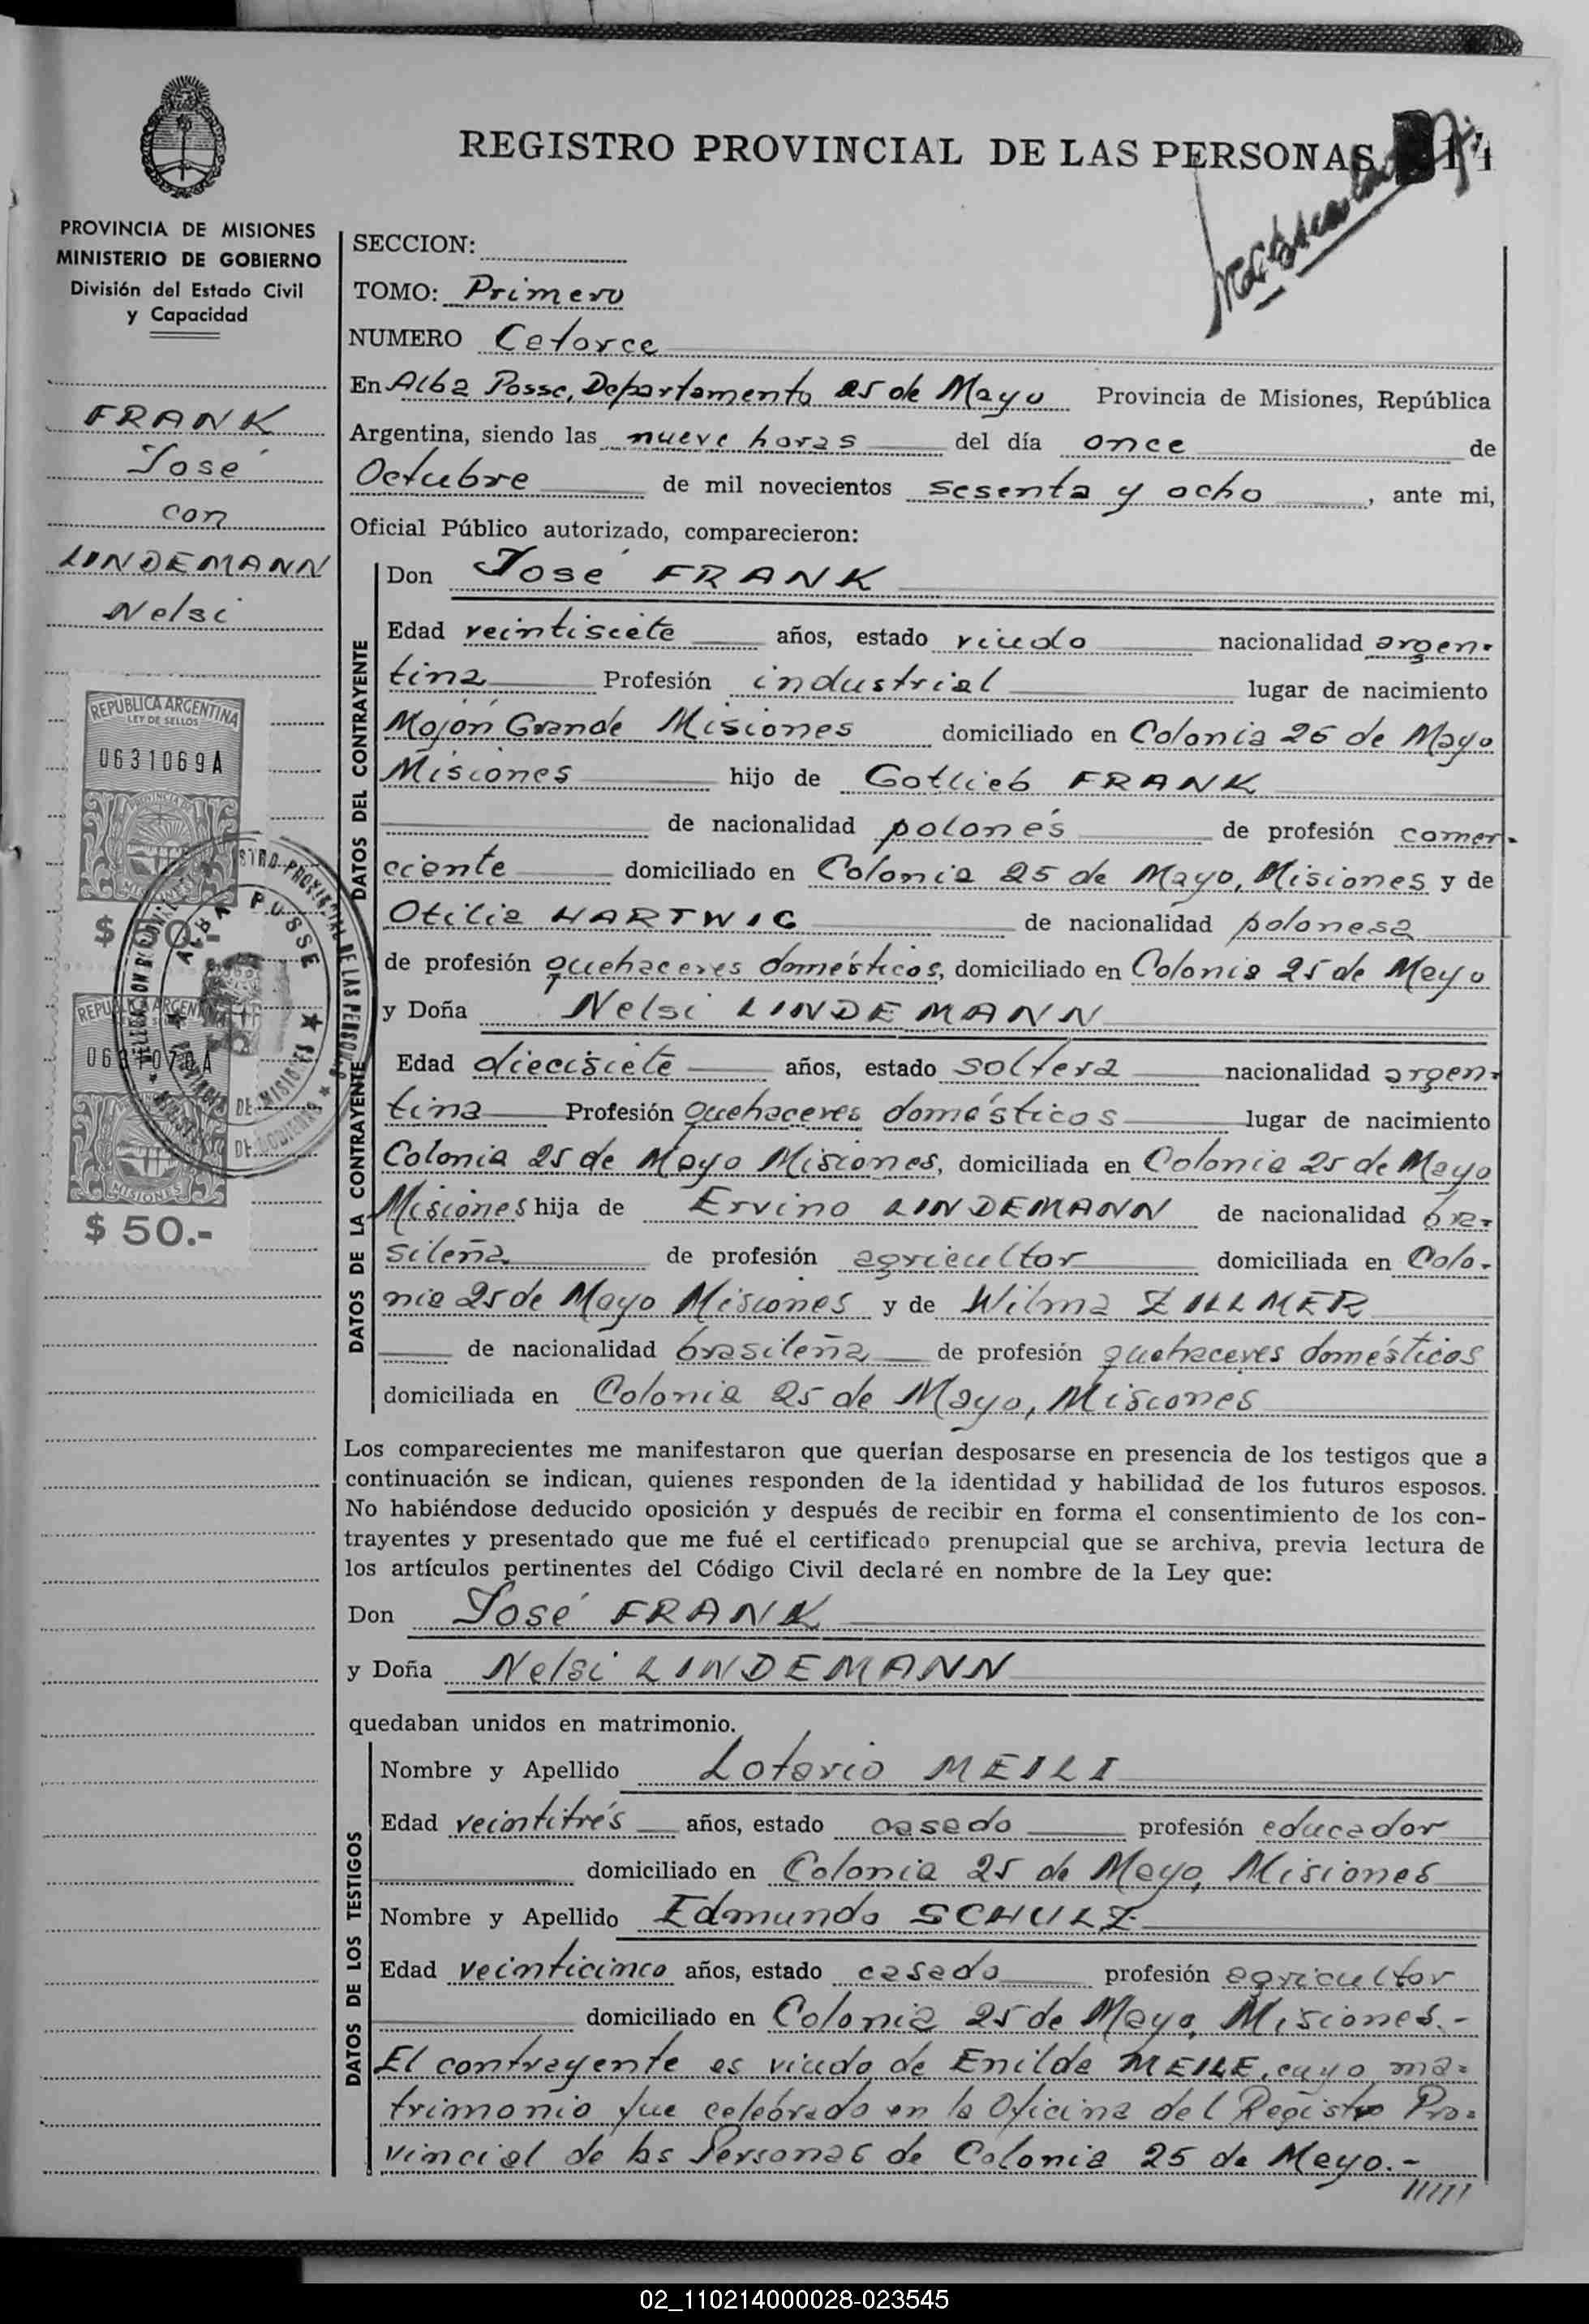 REGISTRO PROVINCIAL DE LAS PERSONAS 14
PROVINCIA DE MISIONES
MINISTERIO DE GOBIERNO
División del Estado Civil
y Capacidad
FRANK
José
con
LINDEMANN
Nelsi
REPUBLICA ARGENTINA
LEY DE SELLOS
0631069A
PROVINCIA DE
MISIONES
$ 50.-
ALBA POSSE
REPUBLICA ARGENTINA
0631070A
MISIONES
$ 50.-
SECCION:
TOMO: Primero
NUMERO Catorce
En Alba Posse, Departamento 25 de Mayo Provincia de Misiones, República
Argentina, siendo las nueve horas del día once de
Octubre de mil novecientos sesenta y ocho, ante mi,
Oficial Público autorizado, comparecieron:
DATOS DEL CONTRAYENTE
Don José FRANK
Edad veintisiete años, estado viudo nacionalidad argen-
tina Profesión industrial lugar de nacimiento
Mojón Grande Misiones domiciliado en Colonia 25 de Mayo
Misiones hijo de Gotlieb FRANK
de nacionalidad polonés de profesión comer-
ciante domiciliado en Colonia 25 de Mayo, Misiones y de
Otilia HARTWIG de nacionalidad polonesa
de profesión quehaceres domésticos, domiciliado en Colonia 25 de Mayo
DATOS DE LA CONTRAYENTE
y Doña Nelsi LINDEMANN
Edad diecisiete años, estado soltera nacionalidad argen-
tina Profesión quehaceres domésticos lugar de nacimiento
Colonia 25 de Mayo Misiones, domiciliada en Colonia 25 de Mayo
Misiones hija de Ervino LINDEMANN de nacionalidad bra-
sileña de profesión agricultor domiciliada en Colo-
nia 25 de Mayo Misiones y de Wilma ZILLMER
de nacionalidad brasileña de profesión quehaceres domésticos
domiciliada en Colonia 25 de Mayo, Misiones
Los comparecientes me manifestaron que querían desposarse en presencia de los testigos que a
continuación se indican, quienes responden de la identidad y habilidad de los futuros esposos.
No habiéndose deducido oposición y después de recibir en forma el consentimiento de los con-
trayentes y presentado que me fué el certificado prenupcial que se archiva, previa lectura de
los artículos pertinentes del Código Civil declaré en nombre de la Ley que:
Don José FRANK
y Doña Nelsi LINDEMANN
quedaban unidos en matrimonio.
DATOS DE LOS TESTIGOS
Nombre y Apellido Lotario MEILI
Edad veintitrés años, estado casado profesión educador
domiciliado en Colonia 25 de Mayo, Misiones
Nombre y Apellido Edmundo SCHULZ
Edad veinticinco años, estado casado profesión agricultor
domiciliado en Colonia 25 de Mayo, Misiones.-
El contrayente es viudo de Enilda MEILE, cuyo ma=
trimonio fue celebrado en la Oficina del Registro Pro=
vincial de las Personas de Colonia 25 de Mayo.-
//////
02_110214000028-023545